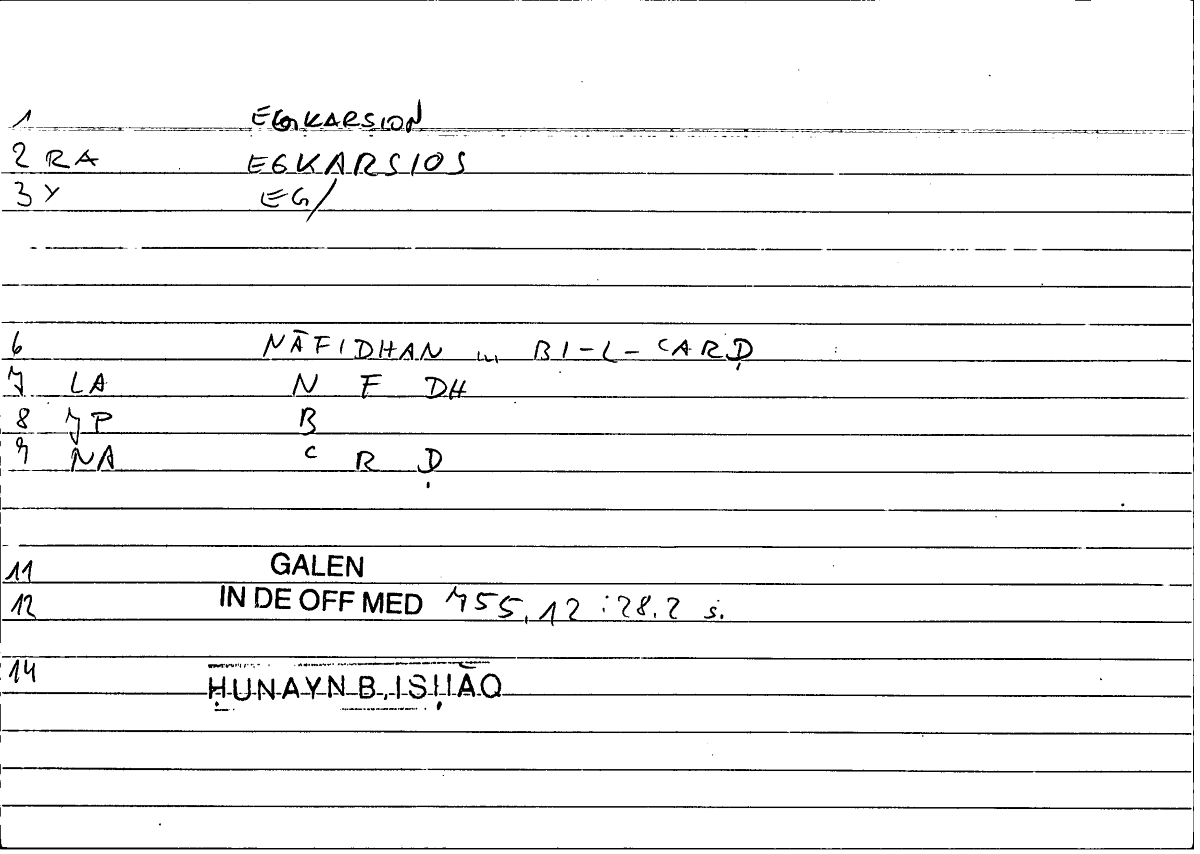 1 EGKARSION
2 RA EGKARSIOS
3 Y EG/
6 NĀFIDHAN ... BI-L-ʿARḌ
7 LA N F DH
8 JP B
9 NA ʿ R Ḍ
11 GALEN
12 IN DE OFF MED 755,12 : 28,2 s.
14 ḤUNAYN B. ISḤĀQ